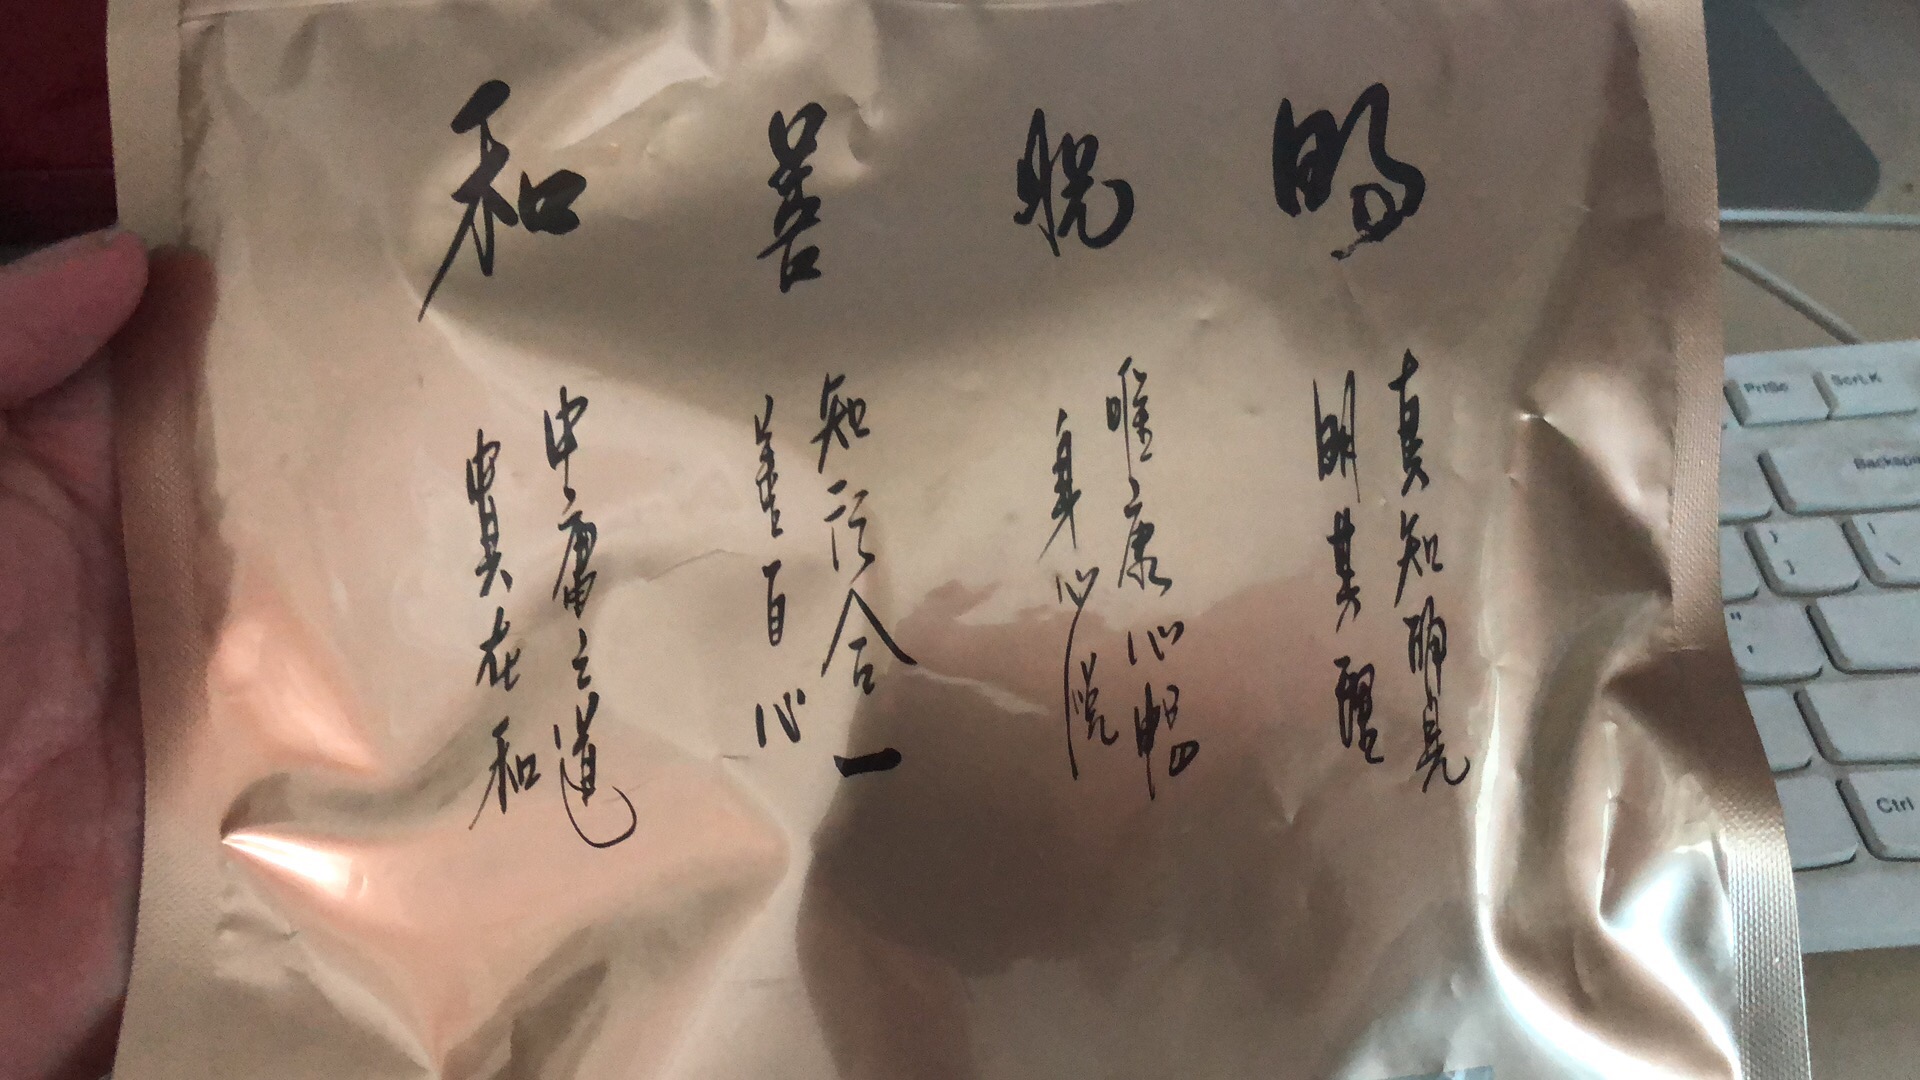 明
善
和
真知确亮
明其
唯康心
身心悦
知行合一
善自心
中庸之道
贵在和
PrtSc
ScrLK
Backspa
Ctrl